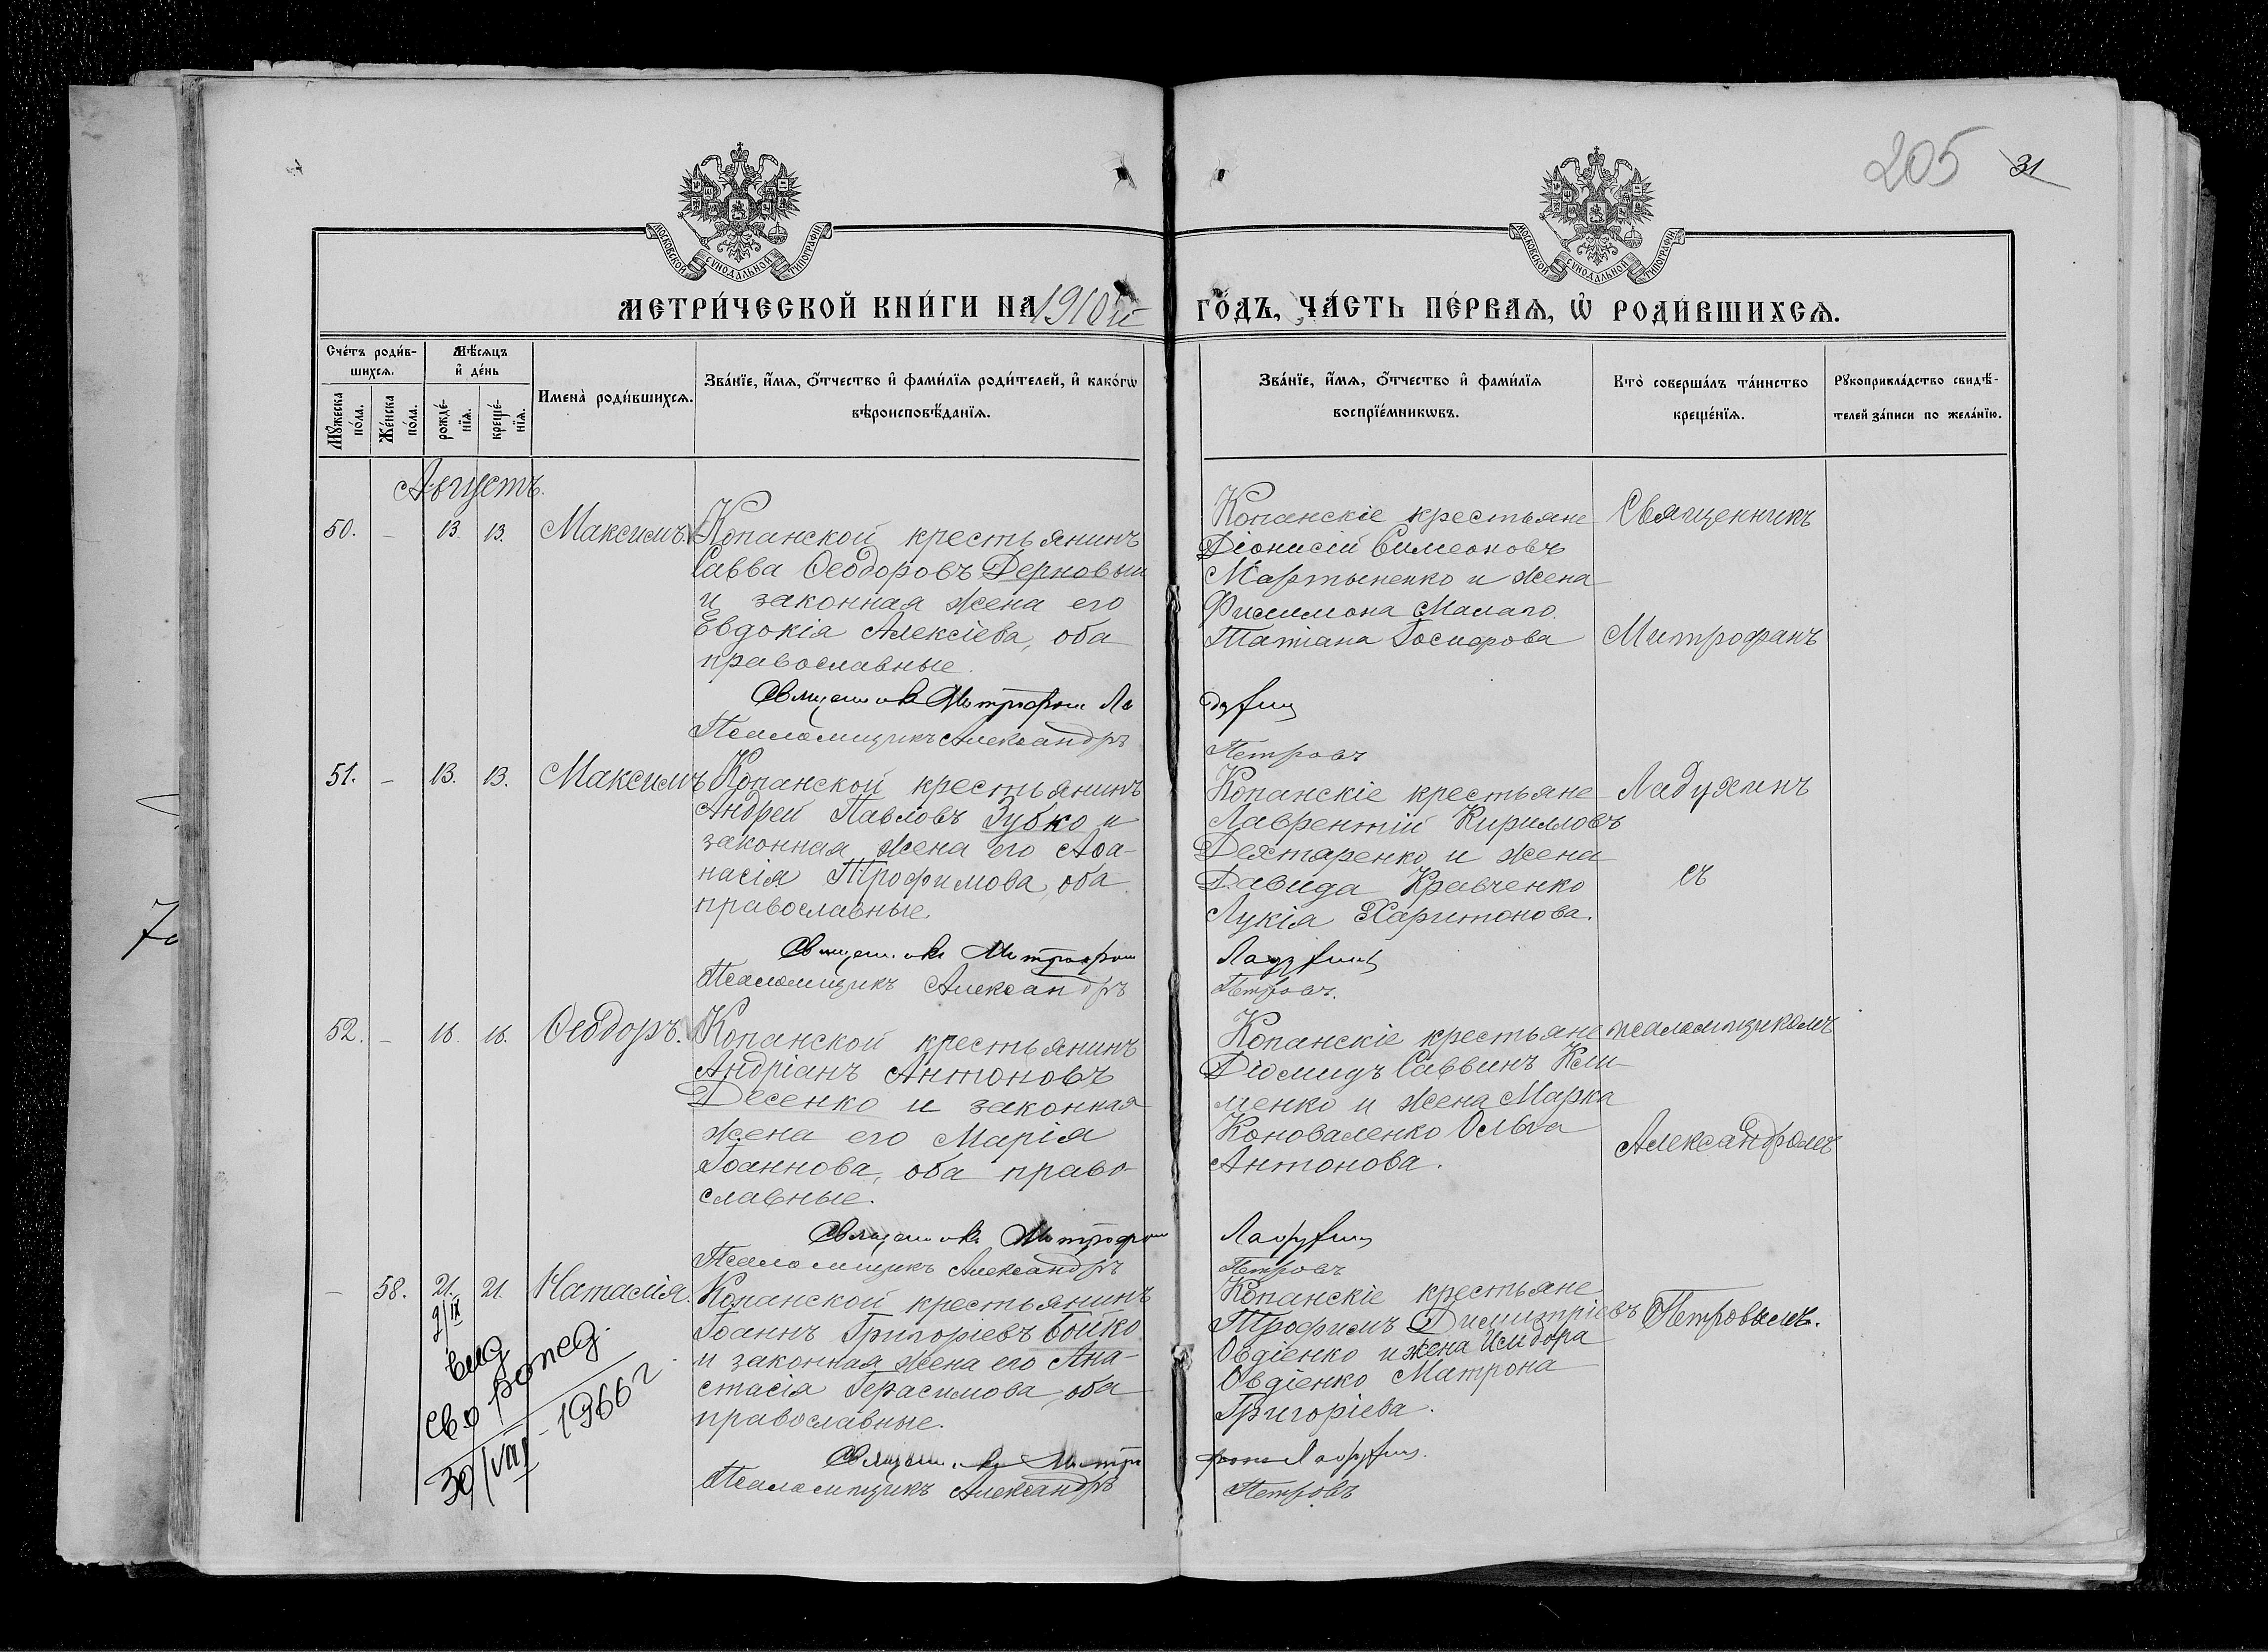 205 31
МОСКОВСКОЙ СѴНОДАЛЬНОЙ ТИПОГРАФІИ
МОСКОВСКОЙ СѴНОДАЛЬНОЙ ТИПОГРАФІИ
МЕТРИ́ЧЕСКОЙ КНИ́ГИ НА 1910й ГО́ДЪ, ЧА́СТЬ ПЕ́РВАЯ, Ѽ РОДИ́ВШИХСѦ.
Сче́тъ роди́в-
шихсѧ.
Мꙋ́жеска по́ла.
Же́нска по́ла.
Мѣ́сѧцъ
и҆ де́нь
рожде́-
нїѧ.
креще́-
нїѧ.
Имена̀ роди́вшихсѧ.
Зва́нїе, и҆́мѧ, ѻ҆́тчество и҆ фами́лїѧ роди́телей, и҆ како́гѡ
вѣроисповѣ́данїѧ.
Зва́нїе, и҆́мѧ, ѻ҆́тчество и҆ фами́лїѧ
воспрїе́мникѡвъ.
Кто̀ соверша́лъ та́инство
креще́нїѧ.
Рꙋкоприкла́дство свидѣ́-
телей за́писи по жела́нїю.
Августъ.
50. - 13. 13. Максимъ.
Копанской крестьянинъ
Савва Ѳеодоровъ Дерновый
и законная жена его
Евдокія Алексіева, оба
православные.
Священникъ Митрофанъ Ла
Псаломщикъ Александръ
Копанскіе крестьяне
Діонисій Симеоновъ
Мартыненко и жена
Филимона Малаго
Татіана Іосифова
духинъ
Петровъ
Священникъ
Митрофанъ
51. - 13. 13. Максимъ
Копанской крестьянинъ
Андрей Павловъ Зубко и
законная жена его Аѳа-
насія Трофимова, оба
православные.
Священникъ Митрофанъ
Псаломщикъ Александръ
Копанскіе крестьяне
Лаврентій Кирилловъ
Дехтаренко и жена
Давида Кравченко
Лукія Харитонова.
Ладухинъ
Петровъ.
Ладухинъ
съ
52. - 16. 16. Ѳеодоръ.
Копанской крестьянинъ
Андріанъ Антоновъ
Десенко и законная
жена его Марія
Іоаннова, оба право-
славные.
Священникъ Митрофанъ
Псаломщикъ Александръ
Копанскіе крестьяне
Діомидъ Саввинъ Кли-
менко и жена Марка
Коноваленко Ольга
Антонова.
Ладухинъ
Петровъ
псаломщикомъ
Александромъ
- 58. 21. 21. Наталія.
2/IX
выд
св.о рожд.
30/VIII - 1966 г.
Копанской крестьянинъ
Іоаннъ Григоріевъ Бойко
и законная жена его Ана-
стасія Герасимова, оба
православные.
Священникъ Митро
Псаломщикъ Александръ
Копанскіе крестьяне
Трофимъ Димитріевъ
Овдіенко и жена Исидора
Овдіенко Матрона
Григоріева.
фанъ Ладухинъ.
Петровъ
Петровымъ.